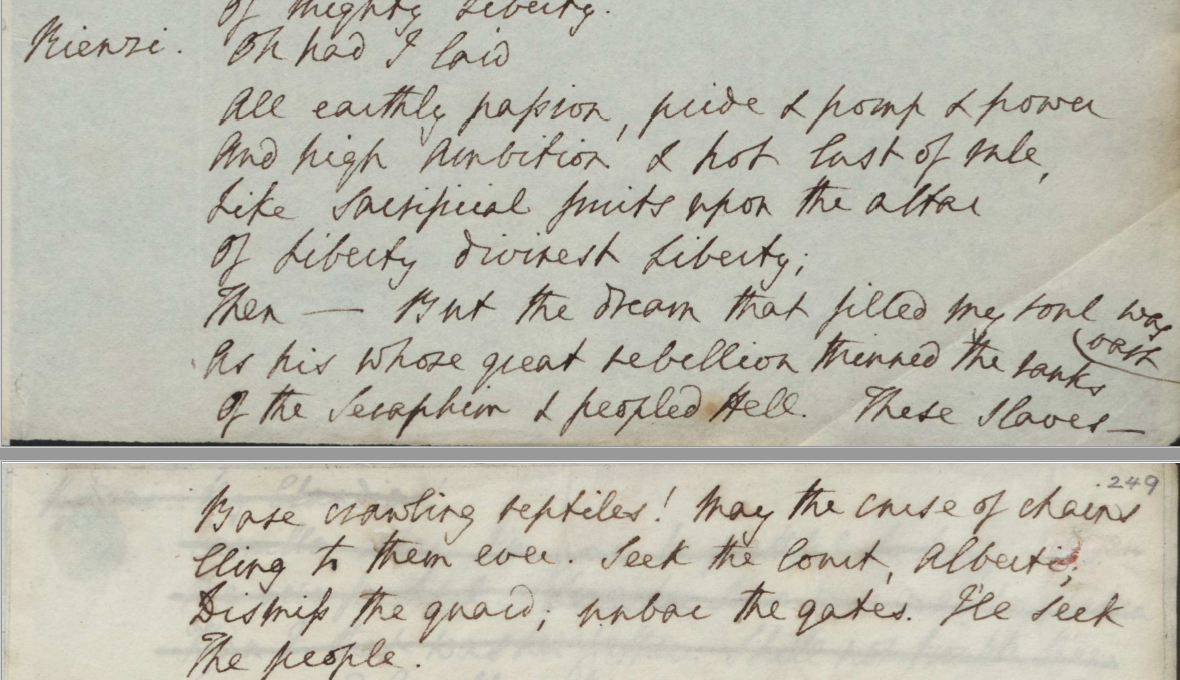 of mighty Liberty.
Rienzi. Oh had I laid
All earthly passion, pride & pomp & power
And high Ambition & hot lust of rule,
Like sacrificial fruits upon the altar
Of Liberty divinest Liberty;
Then — But the dream that filled my soul was
vast
As his whose great rebellion thinned the ranks
Of the Seraphim & peopled Hell. These slaves—
249
Base crawling reptiles! May the curse of chains
Cling to them ever. Seek the Court, Alberti,
Dismiss the guard; unbar the gates. I'le seek
The people.